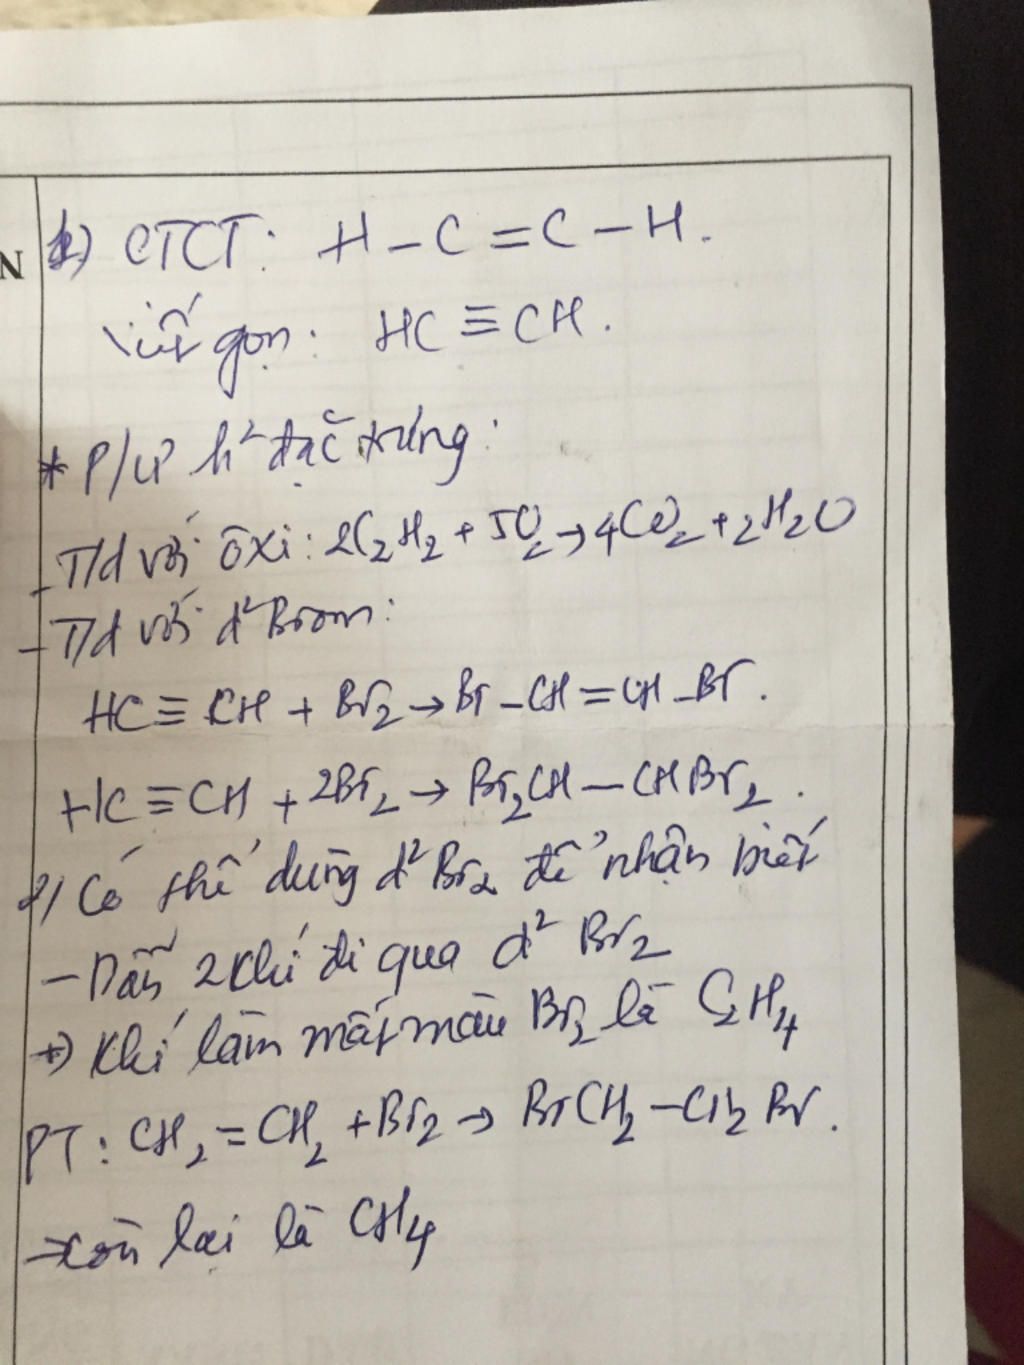 N
1) CTCT: H - C = C - H.
Viết gọn: HC ≡ CH.
* P/ư h² đặc trưng:
- T/d với ôxi: 2C₂H₂ + 5O₂ → 4CO₂ + 2H₂O
- T/d với d² Brom:
HC ≡ CH + Br₂ → Br - CH = CH - Br.
HC ≡ CH + 2Br₂ → Br₂CH - CHBr₂.
2/ Có thể dùng d² Br₂ để nhận biết
- Dẫn 2 khí đi qua d² Br₂
→ Khí làm mất màu Br₂ là C₂H₄
PT: CH₂ = CH₂ + Br₂ → BrCH₂ - CH₂Br.
→ còn lại là CH₄